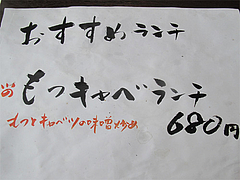 おすすめランチ
もつキャベランチ
もつとキャベツの味噌炒め
680円